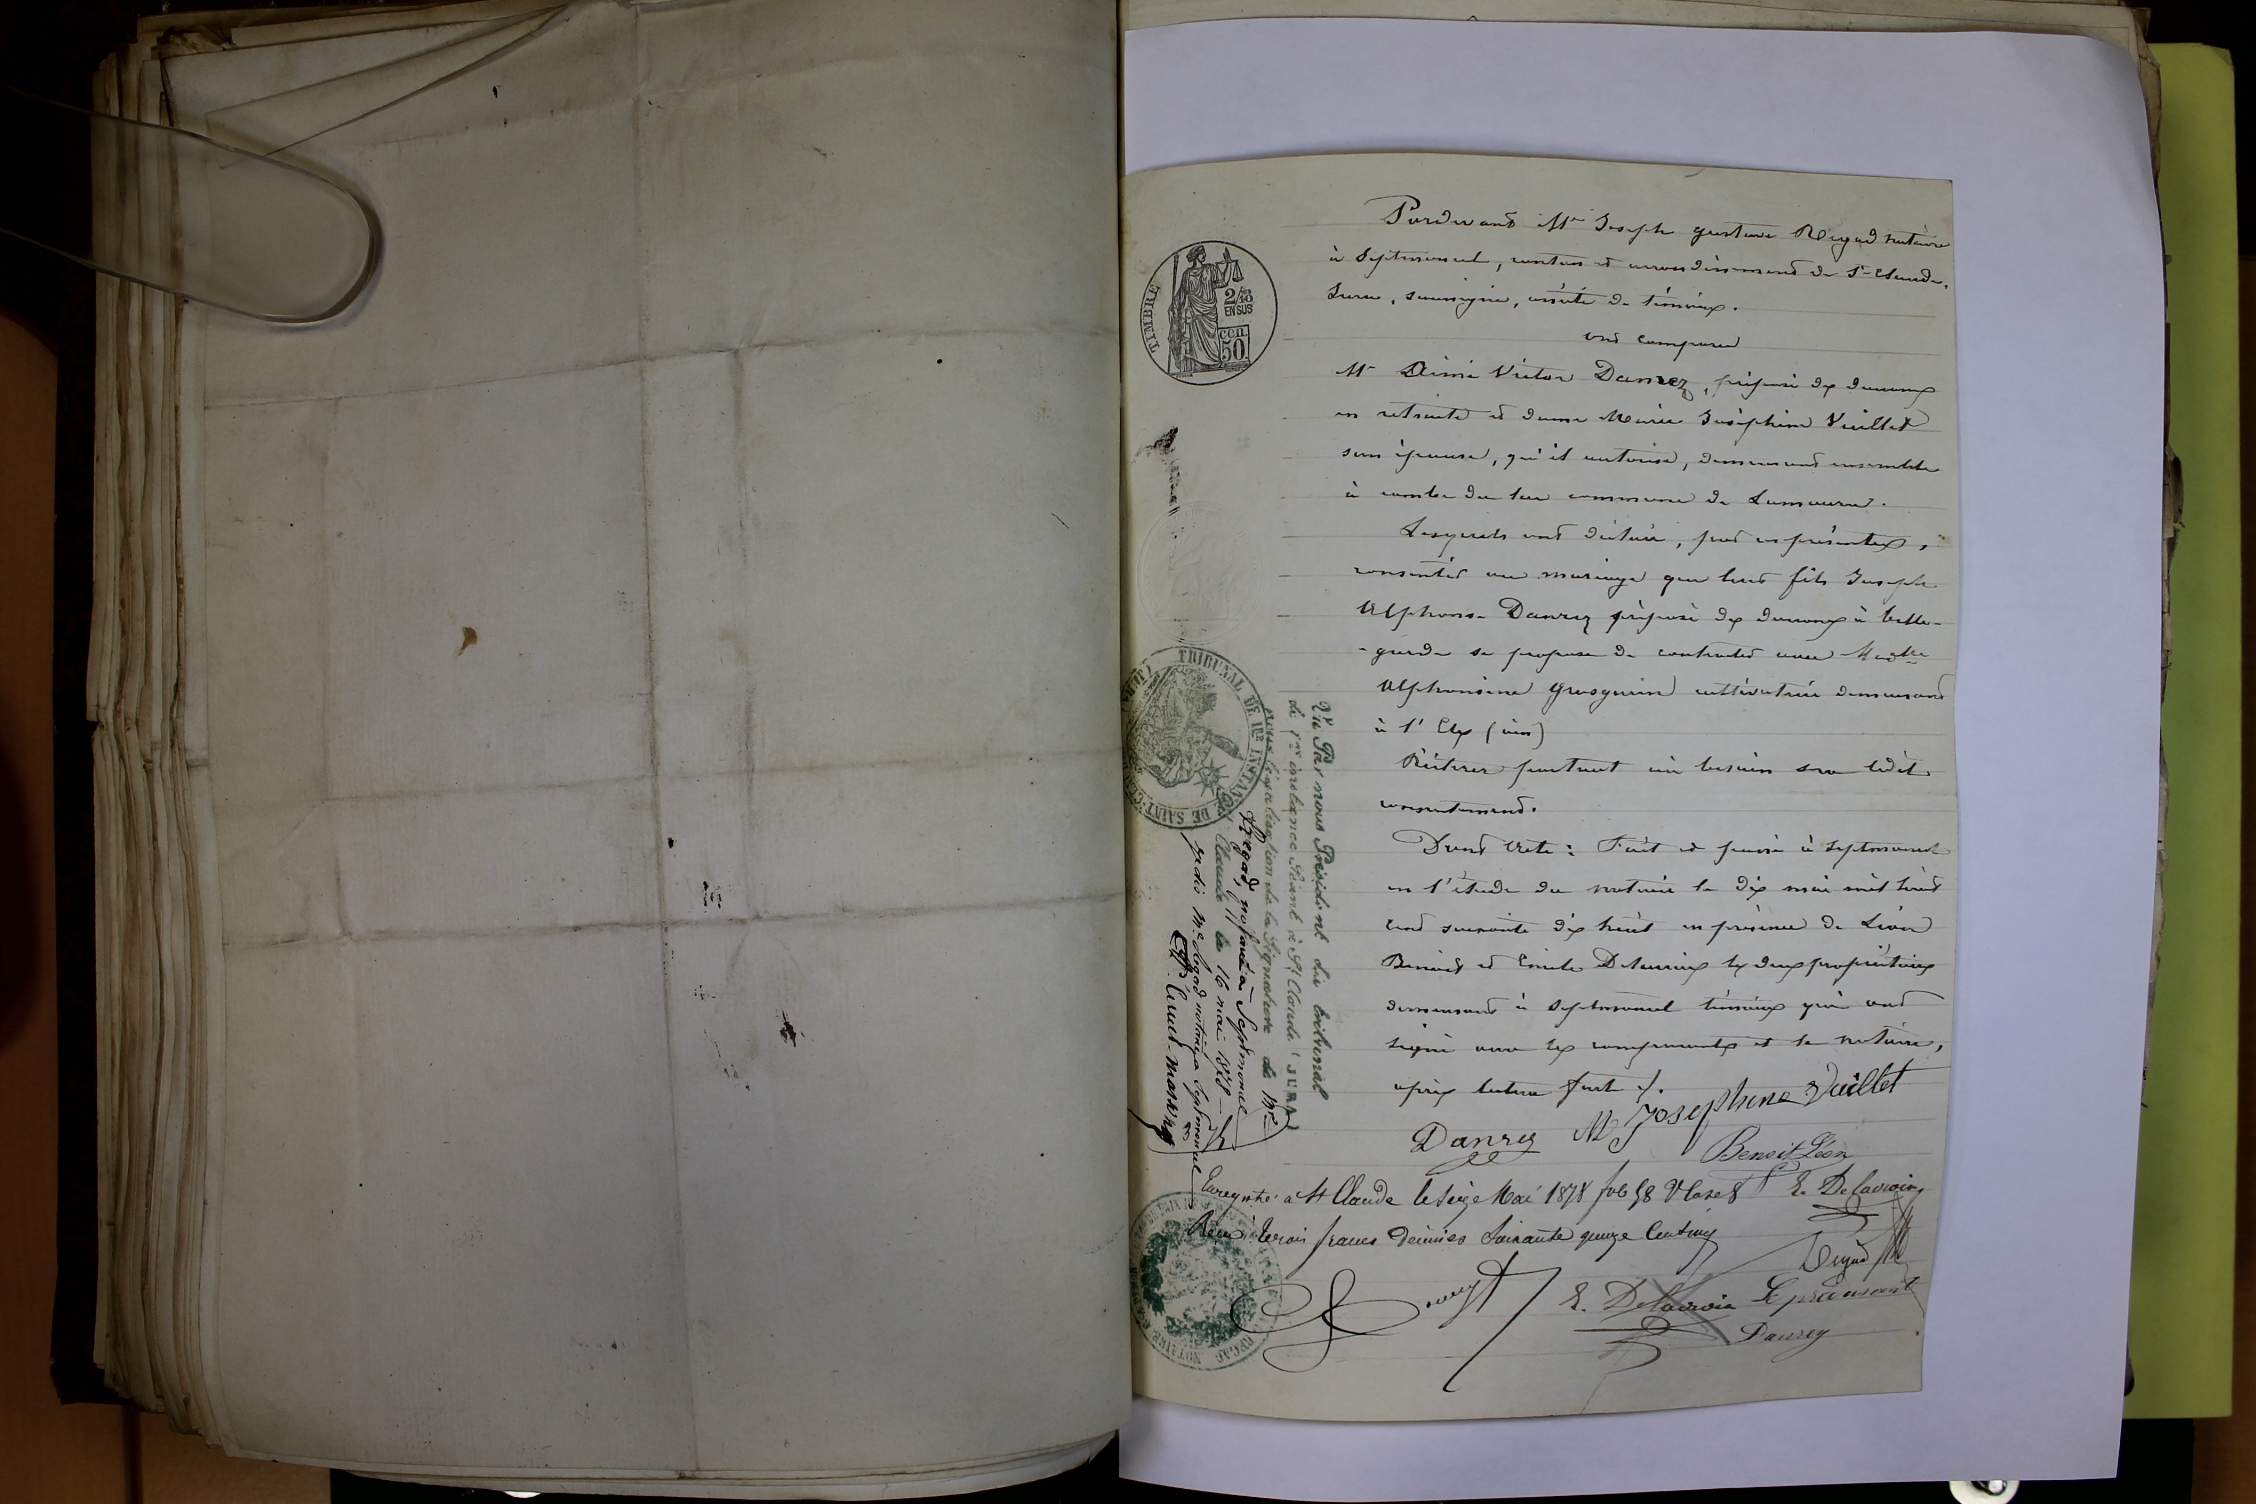 Pardevant Me Joseph gustave Régad notaire
à Septmoncel, canton et arrondissement de St-Claude,
Jura, soussigné, assisté de témoins.
ont comparu
Mr Aimé Victor Danrez, préposé des douanes
en retraite et dame Marie Joséphine Vuillet
son épouse, qu'il autorise, demeurant ensemble
à combe du lac commune de Lamoura.
Lesquels ont déclaré, par ces présentes,
consentir au mariage que leur fils Joseph
Alphonse Danrez préposé des douanes à belle-
-garde se propose de contracter avec Melle
Alphonsine grosgurin cultivatrice demeurant
à l' (ain)
Réitérer partout où besoin sera ledit
consentement.
Dont Acte: Fait et passé à Septmoncel
en l'étude du notaire le dix mai mil huit
cent soixante dix huit en présence de Léon
Benoit et Emile Delacroix les deux propriétaires
demeurant à Septmoncel témoins qui ont
signé avec les comparants et le notaire,
après lecture faite ./.
Danrez M Josephine Vuillet
Benoit Léon
E. Delacroix
Regad
Enregistré à St Claude le seize Mai 1878 fol 58 Vo Case 8
Reçu: trois francs décimes soixante quinze Centimes
E. Delacroix Le présent
Danrez
TIMBRE
2/10
EN SUS
CEN.
50
Vu Par nous Président du tribunal
de 1re instance Séant à St Claude (JURA)
pour légalisation de la Signature de Me
Régad, notaire à Septmoncel
St Claude le 16 mai 1878
TRIBUNAL DE 1RE INSTANCE DE SAINT-CLAUDE
NOTAIRE